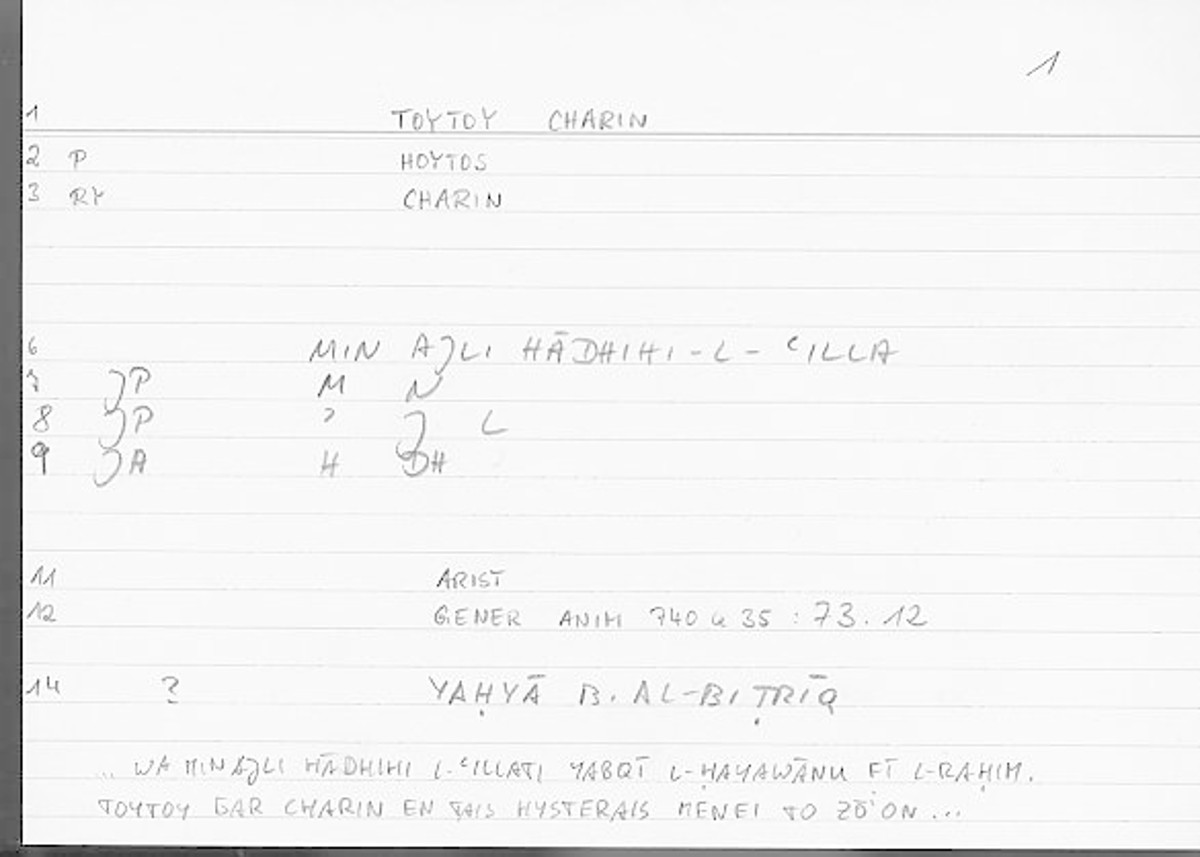 1
1 TOYTOY CHARIN
2 P HOYTOS
3 RY CHARIN
6 MIN AJLI HĀDHIHI-L-ʿILLA
7 JP M N
8 JP ʾ J L
9 JA H DH
11 ARIST
12 GENER ANIM 740 a 35 : 73.12
14 ? YAḤYĀ B. AL-BIṬRĪQ
.. WA MIN AJLI HĀDHIHI L-ʿILLATI YABQĪ L-ḤAYAWĀNU FĪ L-RAḤIM.
TOYTOY GAR CHARIN EN TAIS HYSTERAIS MENEI TO ZŌʾON ...